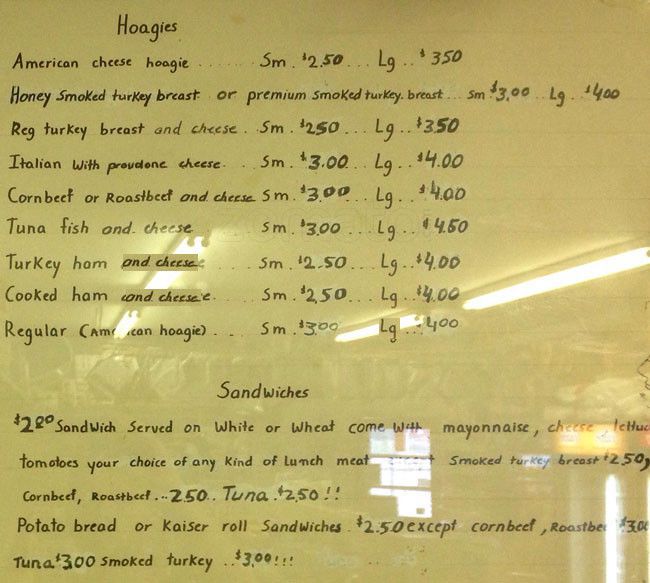 Hoagies
American cheese hoagie ....... Sm. $2.50... Lg.. $3.50
Honey Smoked turkey breast or premium Smoked turkey. breast... Sm $3.00.. Lg.. $4.00
Reg turkey breast and cheese. Sm. $2.50... Lg..$3.50
Italian With provolone cheese.... Sm. $3.00... Lg..$4.00
Cornbeef or Roastbeef and cheese Sm. $3.00... Lg..$4.00
Tuna fish and cheese ..... Sm. $3.00... Lg..$4.50
Turkey ham and cheese ..... Sm. $2.50... Lg..$4.00
Cooked ham and cheese. .... Sm. $2,50... Lg..$4.00
Regular (American hoagie) .... Sm. $3.00... Lg...$4.00
Sandwiches
$2.00 Sandwich Served on White or Wheat come with mayonnaise, cheese, lettuc
tomotoes your choice of any Kind of Lunch meat Smoked turkey breast $2.50,
Cornbeef, Roastbeef...2.50.. Tuna.$2.50!!
Potato bread or Kaiser roll Sandwiches. $2.50 except cornbeef, Roastbee $3.00
Tuna $3.00 Smoked turkey ..$3.00!!!